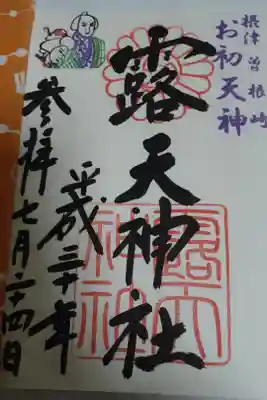 摂津曽根崎
お初天神
露天神社
平成三十年
参拝七月二十四日
露天
神社